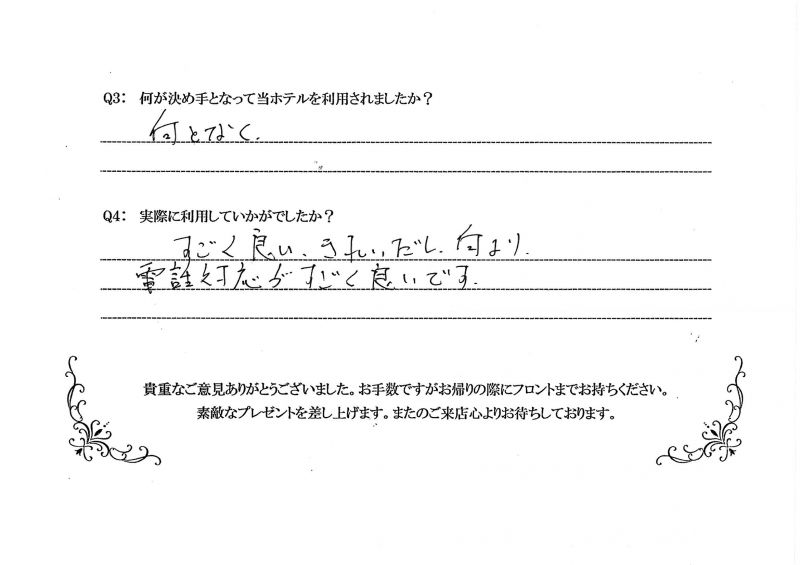 Q3: 何が決め手となって当ホテルを利用されましたか？
何となく.
Q4: 実際に利用していかがでしたか？
すごく良い、きれいだし、何より、
電話対応がすごく良いです.
貴重なご意見ありがとうございました。お手数ですがお帰りの際にフロントまでお持ちください。
素敵なプレゼントを差し上げます。またのご来店心よりお待ちしております。